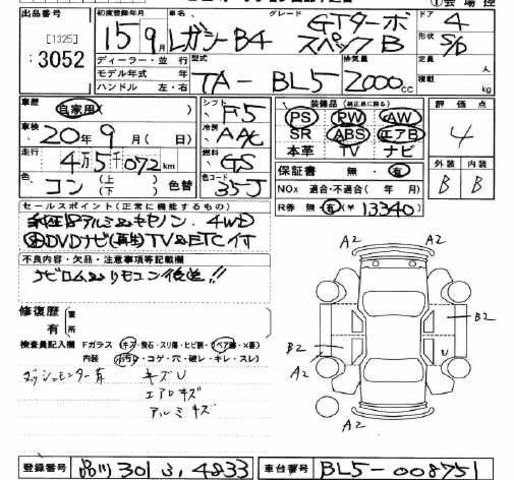 出品番号 [1325] 3052
初度登録年月 15年9月 車名 レガシーB4 グレード GTターボ スペックB ドア 4 形状 S/D
ディーラー・並行 モデル年式 年 ハンドル 左・右
型式 TA-BL5 排気量 2000cc 定員 人 積載 kg
車歴 自家用 シフト F5
車検 20年9月(日) 冷房 AAC
走行 4万5千072km 燃料 GS
色 コン (上 下) 色替 色コード 35-J
装備品 (純正品に限る) PS PW AW
SR ABS エアB
本革 TV ナビ
保証書 無・有
NOx 適合・不適合(年 月)
R券 無・有(¥13340)
評価点 4
外装 B 内装 B
セールスポイント(正常に機能するもの)
純正18アルミ&キセノン. 4WD
DVDナビ(再生)TV&ETC付
不良内容・欠品・注意事項等記載欄
ナビロム&リモコン後送!!
修復歴 有 無
検査員記入欄 Fガラス (キズ・飛石・スリ傷・ヒビ割・リペア跡・X要)
内装 (ヨゴレ・コゲ・穴・破レ・キレ・スレ)
ダッシュモニター有 キズU
エアロキズ
アルミキズ
A2 A2
A2
B2
B2
U
A2
A2
登録番号 品川 301 4833 車台番号 BL5-008751